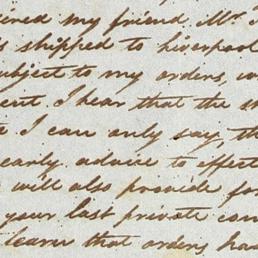 my friend Mr.
shipped to Liverpool
subject to my orders,
I hear that the
I can only say,
early advice to effect
will also provide for
your last private
learn that orders